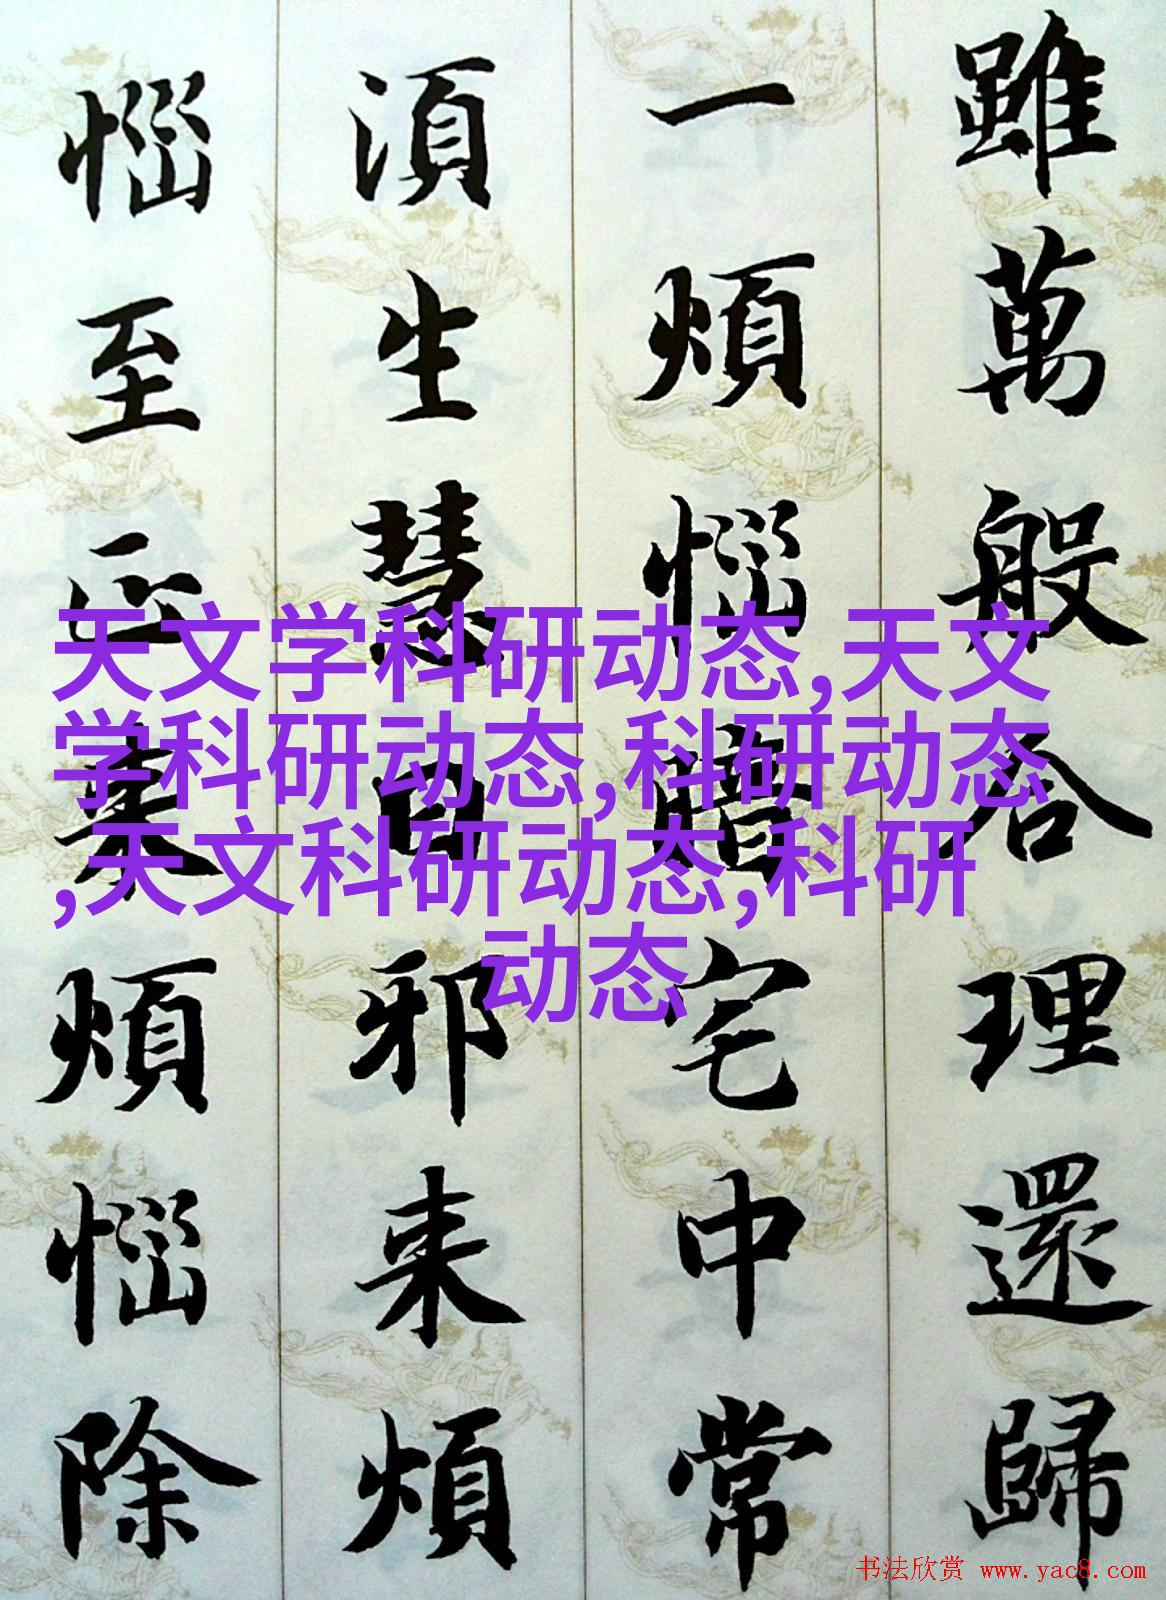 雖萬般合理還歸
一煩惱暗宅中常
湏生慧日邪来煩
惱至正来煩惱除
天文学科研动态,天文
学科研动态,科研动态
,天文科研动态,科研
动态
书法欣赏 www.yac8.com